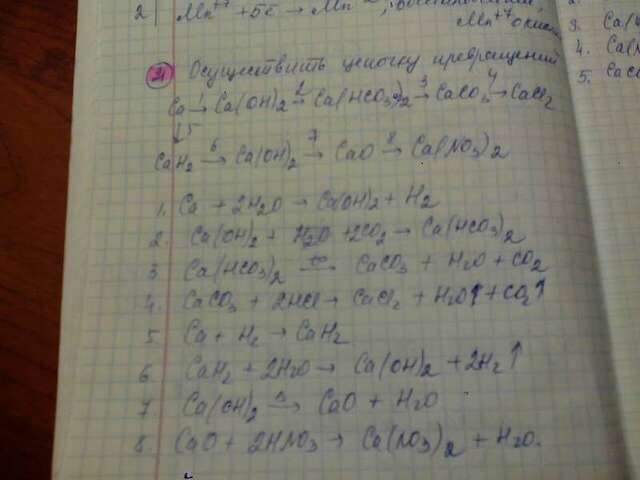 2 Mn⁺⁷ + 5ē → Mn⁺²,
Mn⁺⁷ окисл
3) Осуществить цепочку превращений
Ca →1 Ca(OH)2 →2 Ca(HCO3)2 →3 CaCO3 →4 CaCl2
↓5
CaH2 →6 Ca(OH)2 →7 CaO →8 Ca(NO3)2
1. Ca + 2H2O → Ca(OH)2 + H2
2. Ca(OH)2 + H2O + 2CO2 → Ca(HCO3)2
3 Ca(HCO3)2 → CaCO3 + H2O + CO2
4. CaCO3 + 2HCl → CaCl2 + H2O↑ + CO2↑
5. Ca + H2 → CaH2
6. CaH2 + 2H2O → Ca(OH)2 + 2H2↑
7. Ca(OH)2 → CaO + H2O
8. CaO + 2HNO3 → Ca(NO3)2 + H2O.
3. Ca(
4. Ca(N
5. CaC